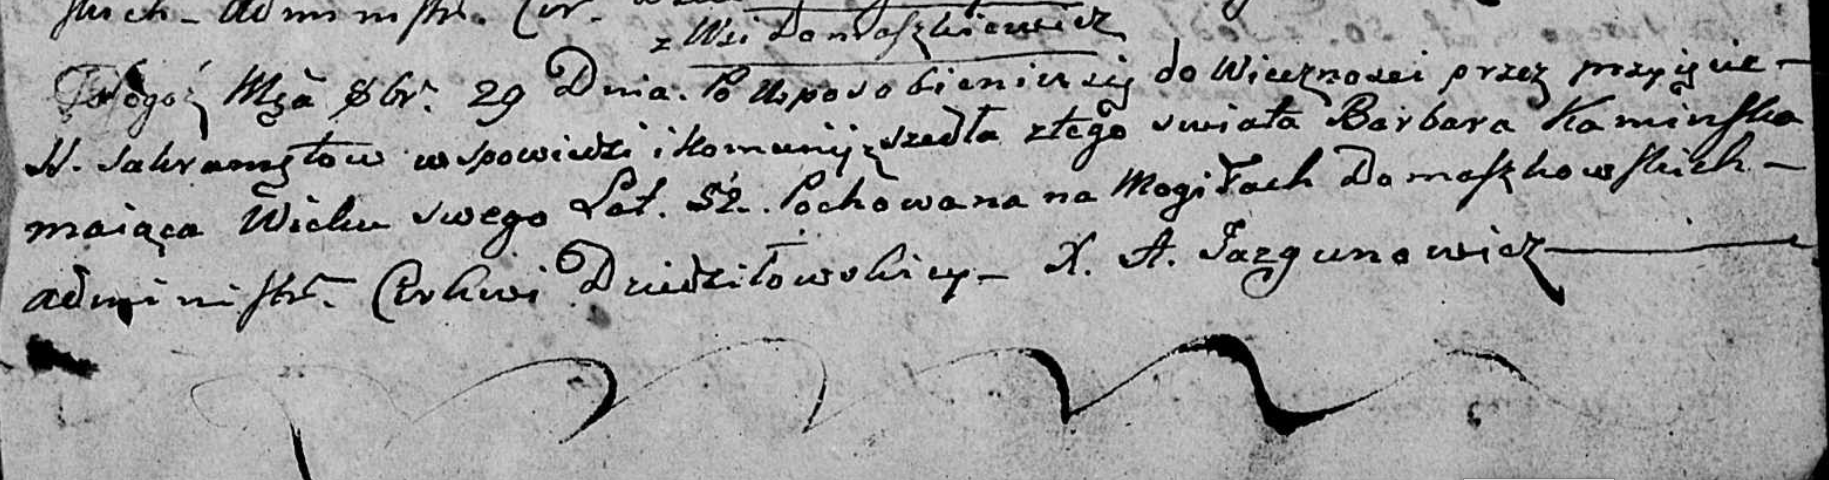 skich - Administr.
z Wsi Domaszkiewicz
Tegoż Mca 8br. 29 Dnia. Po usposobieniu się do Wieczności przez przyięcie -
SS. Sakramętow w spowiedzi i Komunij zszedła ztego swiata Barbara Kaminska
maiąca Wieku swego Lat. 52. Pochowana na Mogiłach Domaszkowskich -
administr. Cerkwi Dziedziłowskiey - X. A. Jazgunowicz